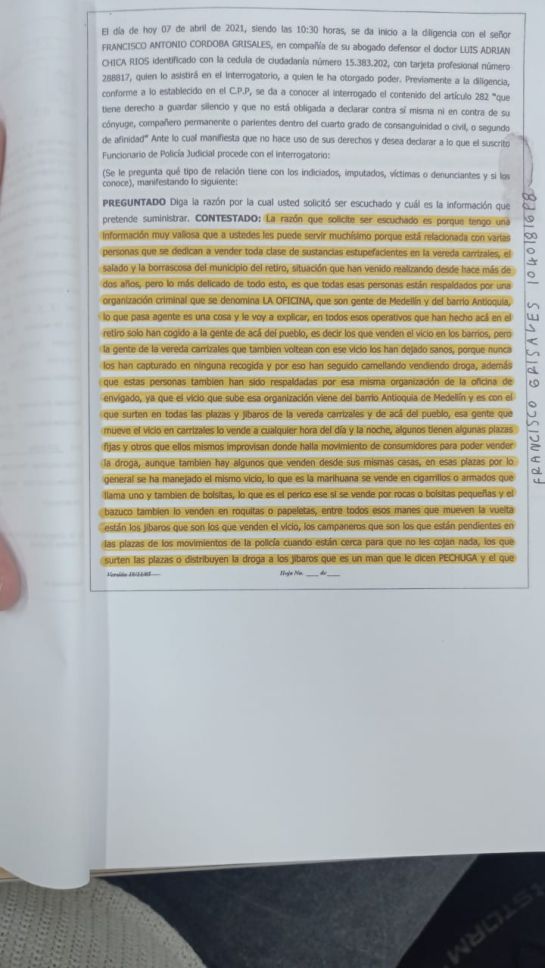 El día de hoy 07 de abril de 2021, siendo las 10:30 horas, se da inicio a la diligencia con el señor
FRANCISCO ANTONIO CORDOBA GRISALES, en compañía de su abogado defensor el doctor LUIS ADRIAN
CHICA RIOS identificado con la cedula de ciudadanía número 15.383.202, con tarjeta profesional número
288817, quien lo asistirá en el interrogatorio, a quien le ha otorgado poder. Previamente a la diligencia,
conforme a lo establecido en el C.P.P, se da a conocer al interrogado el contenido del artículo 282 "que
tiene derecho a guardar silencio y que no está obligada a declarar contra sí misma ni en contra de su
cónyuge, compañero permanente o parientes dentro del cuarto grado de consanguinidad o civil, o segundo
de afinidad" Ante lo cual manifiesta que no hace uso de sus derechos y desea declarar a lo que el suscrito
Funcionario de Policía Judicial procede con el interrogatorio:
(Se le pregunta qué tipo de relación tiene con los indiciados, imputados, víctimas o denunciantes y si los
conoce), manifestando lo siguiente:
PREGUNTADO Diga la razón por la cual usted solicitó ser escuchado y cuál es la información que
pretende suministrar. CONTESTADO: La razón que solicite ser escuchado es porque tengo una
información muy valiosa que a ustedes les puede servir muchísimo porque está relacionada con varias
personas que se dedican a vender toda clase de sustancias estupefacientes en la vereda carrizales, el
salado y la borrascosa del municipio del retiro, situación que han venido realizando desde hace más de
dos años, pero lo más delicado de todo esto, es que todas esas personas están respaldados por una
organización criminal que se denomina LA OFICINA, que son gente de Medellín y del barrio Antioquia,
lo que pasa agente es una cosa y le voy a explicar, en todos esos operativos que han hecho acá en el
retiro solo han cogido a la gente de acá del pueblo, es decir los que venden el vicio en los barrios, pero
la gente de la vereda carrizales que tambien voltean con ese vicio los han dejado sanos, porque nunca
los han capturado en ninguna recogida y por eso han seguido camellando vendiendo droga, además
que estas personas tambien han sido respaldadas por esa misma organización de la oficina de
envigado, ya que el vicio que sube esa organización viene del barrio Antioquia de Medellín y es con el
que surten en todas las plazas y jibaros de la vereda carrizales y de acá del pueblo, esa gente que
mueve el vicio en carrizales lo vende a cualquier hora del día y la noche, algunos tienen algunas plazas
fijas y otros que ellos mismos improvisan donde halla movimiento de consumidores para poder vender
la droga, aunque tambien hay algunos que venden desde sus mismas casas, en esas plazas por lo
general se ha manejado el mismo vicio, lo que es la marihuana se vende en cigarrillos o armados que
llama uno y tambien de bolsitas, lo que es el perico ese sí se vende por rocas o bolsitas pequeñas y el
bazuco tambien lo venden en roquitas o papeletas, entre todos esos manes que mueven la vuelta
están los jibaros que son los que venden el vicio, los campaneros que son los que están pendientes en
las plazas de los movimientos de la policía cuando están cerca para que no les cojan nada, los que
surten las plazas o distribuyen la droga a los jibaros que es un man que le dicen PECHUGA y el que
Hoja No. ____ de ____
FRANCISCO GRISALES 1040181698
STORM